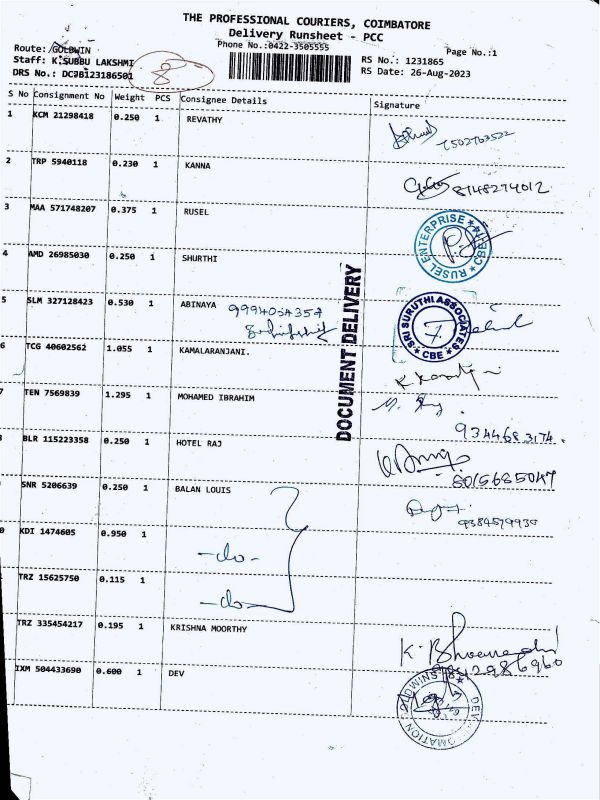 THE PROFESSIONAL COURIERS, COIMBATORE
Delivery Runsheet - PCC
Phone No.:0422-3505555
Page No.:1
Route: /GOLDWIN
Staff: K.SUBBU LAKSHMI
DRS No.: DCJB123186501
8
RS No.: 1231865
RS Date: 26-Aug-2023
S No Consignment No Weight PCS Consignee Details Signature
1 KCM 21298418 0.250 1 REVATHY
7502763522
2 TRP 5940118 0.230 1 KANNA
8148274012
3 MAA 571748207 0.375 1 RUSEL
RUSEL ENTERPRISE ★ CBE ★
4 AMD 26985030 0.250 1 SHURTHI
SRI SURUTHI ASSOCIATES ★ CBE ★
5 SLM 327128423 0.530 1 ABINAYA
9994054357
DOCUMENT DELIVERY
6 TCG 40602562 1.055 1 KAMALARANJANI.
7 TEN 7569839 1.295 1 MOHAMED IBRAHIM
9344683174.
BLR 115223358 0.250 1 HOTEL RAJ
8015685047
SNR 5206639 0.250 1 BALAN LOUIS
9384579930
0 KDI 1474605 0.950 1
-do-
TRZ 15625750 0.115 1
-do-
TRZ 335454217 0.195 1 KRISHNA MOORTHY
IXM 504433690 0.600 1 DEV